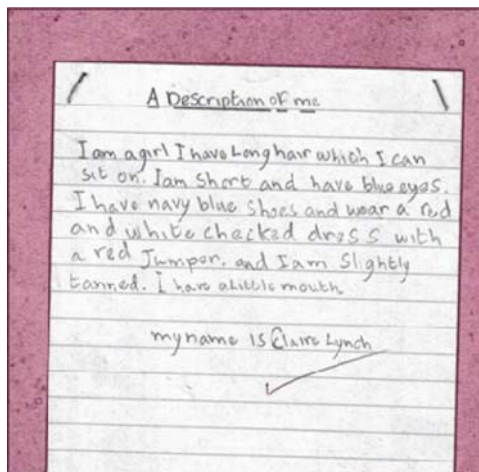 A Description of me
I am a girl I have Long hair which I can
sit on. I am Short and have blue eyes.
I have navy blue Shoes and wear a red
and white checked dress with
a red Jumper. and I am Slightly
tanned. I have a little mouth
my name is Claire Lynch